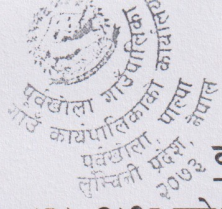 पूर्वखोला गाउँपालिका
गाउँ कार्यपालिकाको कार्यालय
पूर्वखोला पाल्पा
लुम्बिनी प्रदेश, नेपाल
२०७३